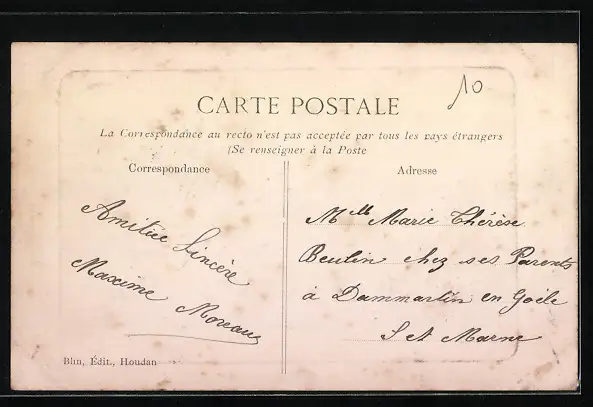 10
CARTE POSTALE
La Correspondance au recto n'est pas acceptée par tous les pays étrangers
(Se renseigner à la Poste
Correspondance
Adresse
Amitiée Sincère
Maxime Moreau
Mlle Marie Thérèse
Beulin chez ses Parents
à Dammartin en Goële
S et Marne
Blin, Édit., Houdan